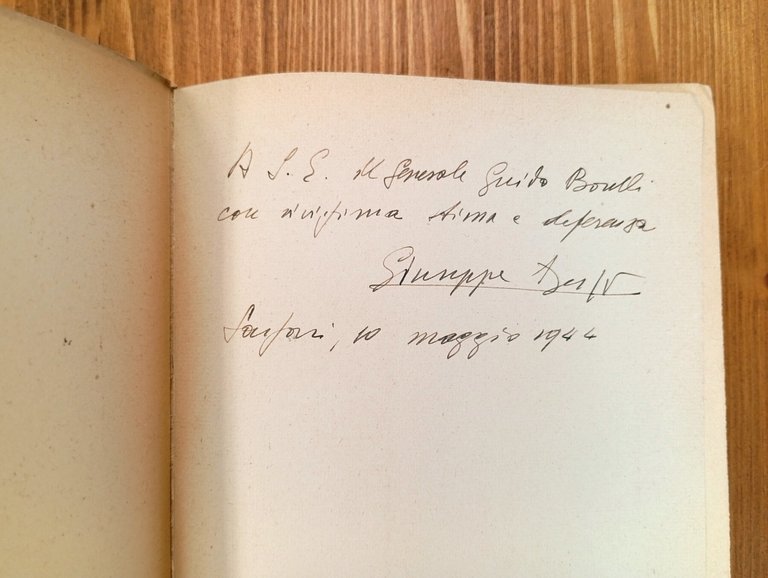 A S. E. il Generale Guido
con vivissima stima e deferenza
Giuseppe Dessí
Sassari, 10 maggio 1944